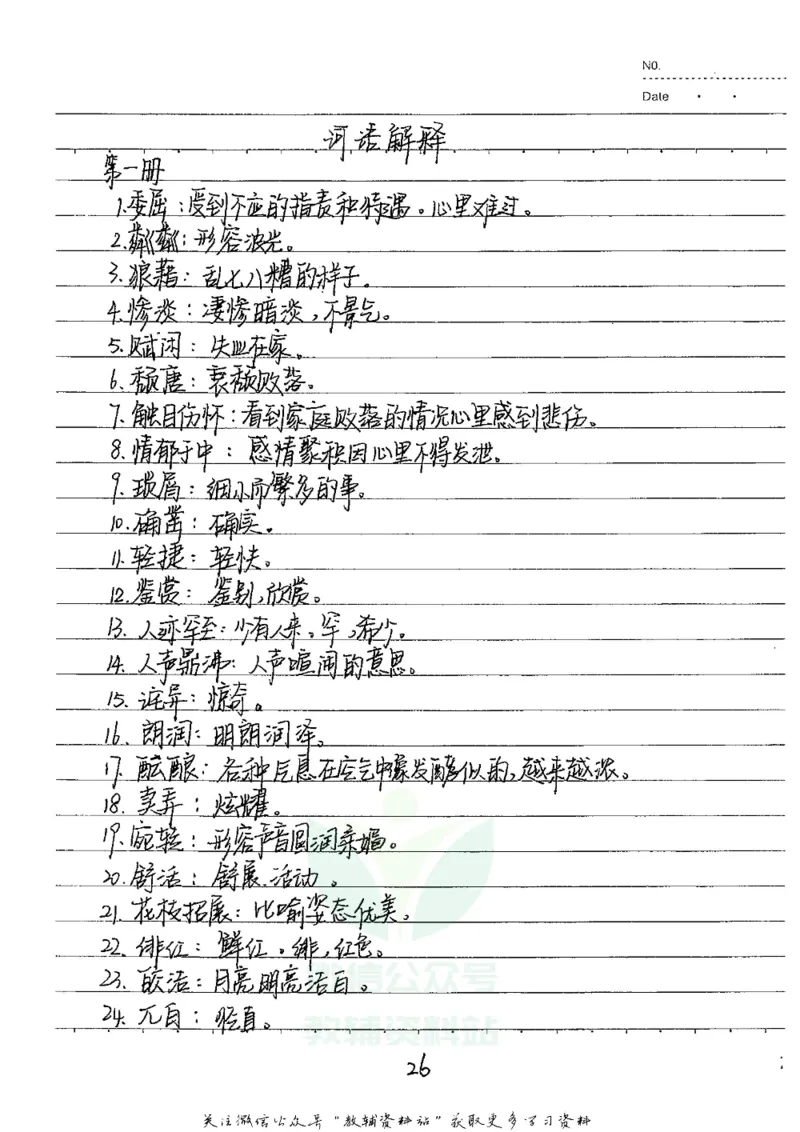 N0.
Date
词语解释
第一册
1.委屈：受到不应的指责和待遇。心里难过。
2.粼粼：形容波光。
3.狼藉：乱七八糟的样子。
4.惨淡：凄惨暗淡，不景气。
5.赋闲：失业在家。
6.颓唐：衰颓败落。
7.触目伤怀：看到家庭败落的情况心里感到悲伤。
8.情郁于中：感情聚积因心里不得发泄。
9.琐屑：细小而繁多的事。
10.确凿：确实。
11.轻捷：轻快。
12.鉴赏：鉴别，欣赏。
13.人迹罕至：少有人来。罕，希少。
14.人声鼎沸：人声喧闹的意思。
15.诧异：惊奇。
16.朗润：明朗润泽。
17.酝酿：各种气息在空气中像发酵似的，越来越浓。
18.卖弄：炫耀。
19.宛转：形容声音圆润柔媚。
20.舒活：舒展.活动。
21.花枝招展：比喻姿态优美。
22.绯红：鲜红。绯，红色。
23.皎洁：月亮明亮洁白。
24.兀自：径直。
微信公众号
教辅资料站
26
关注微信公众号“教辅资料站”获取更多学习资料